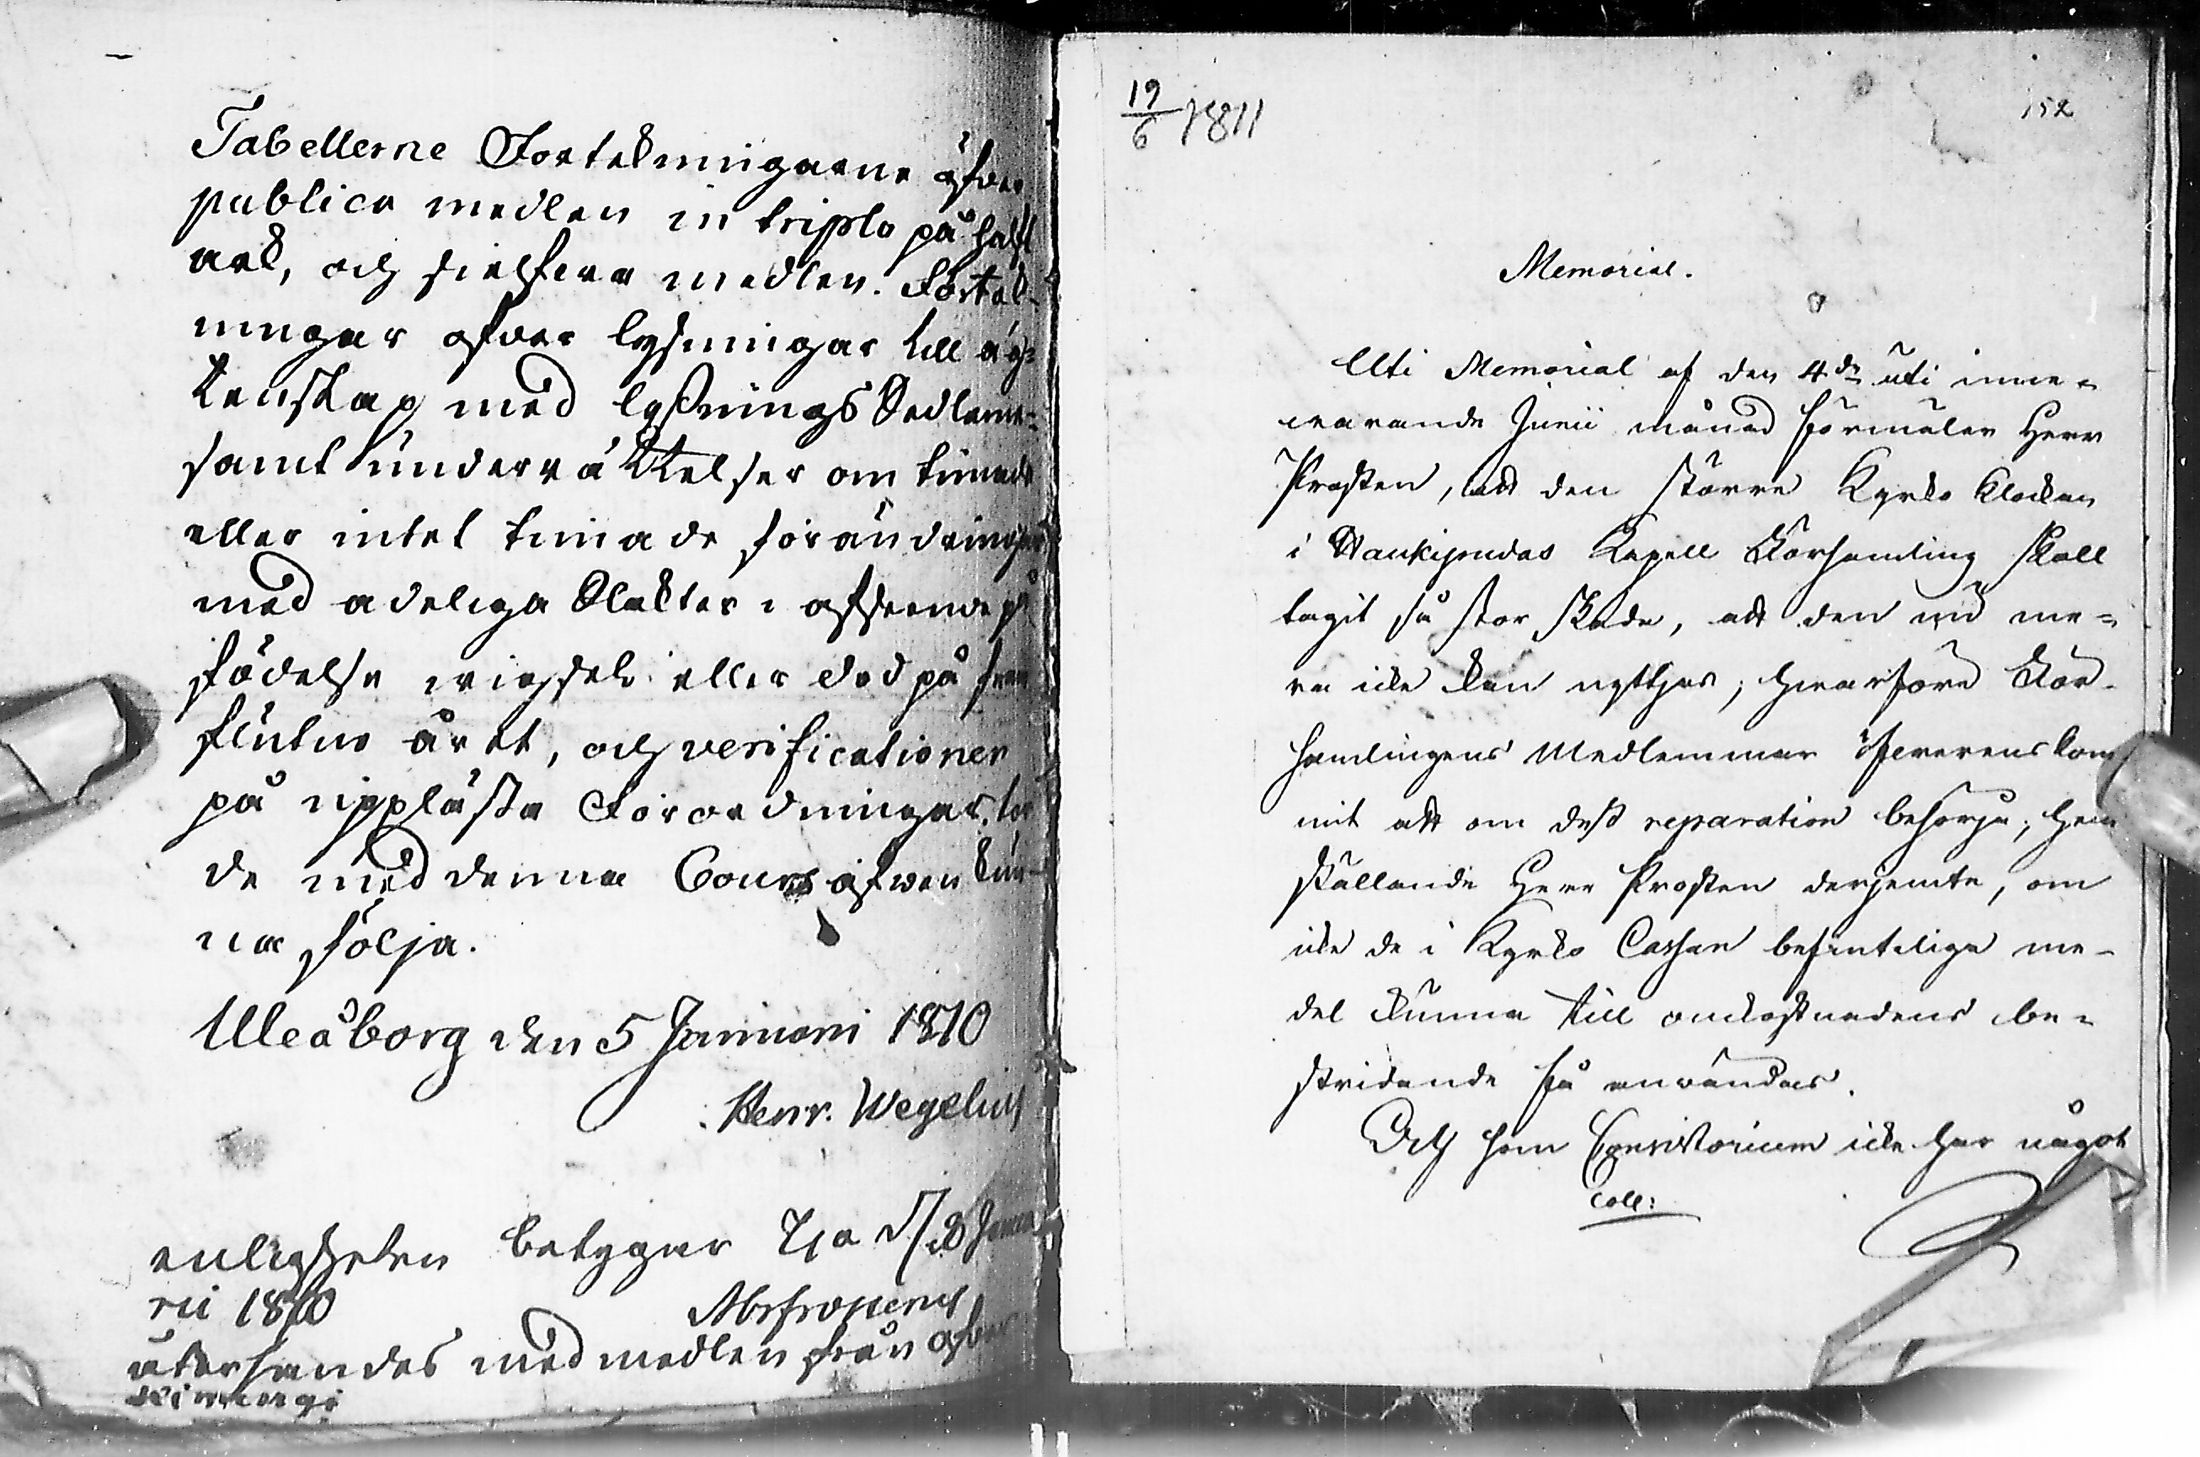 Tabellerne Förtekningarne öfver
publica medlen in triplo på half
ark, och sielfva medlen. Förtek-
ningar öfver lysningar till äg-
tenskap med lysnings Sedlarne
samt underrättelser om timade
eller intet timade förändringar
med adeliga Slakter i afseende på
födelse wigsel eller död på fram
flutne året, och verificationer
på upplästa Förordningar, 
de med denna Cours äfwen kun-
na följa.
Uleåborg den 5 Januarii 1810
Henr. Wegelius
enligheten betygar Ijo d 8 Janua
rii 1810
återsandes med medlen från öfver
Kiimingi
19/6 1811
152
Memorial.
Uti Memorial af den 4de uti inne-
warande Junii månad förmäler Herr
Prosten, att den större Kyrko klockan
i Haukipudas Kapell Församling skall
tagit så stor skada, att den nu me-
ra icke kan nyttjas; hwarföre För-
samlingens Medlemmar öfverenskom-
mit att om dess reparation besörja, hem
ställande Herr Prosten derjemte, om
icke de i Kyrko Cassan befintelige me-
del kunna till omkostnadens be-
stridande få användas.
Och som Consistorium icke har något
Coll: